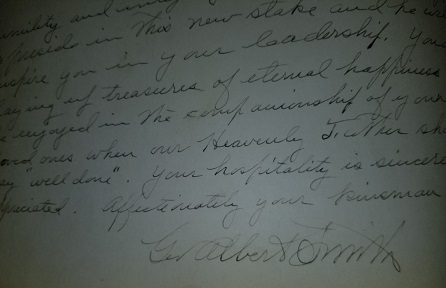 humility and
preside in this new stake and he will
inspire you in your leadership. You
laying up treasures of eternal happiness
be enjoyed in the companionship of your
loved ones when our Heavenly Father sha
say "well done". Your hospitality is sincere
appreciated. Affectionately your kinsman
Geo Albert Smith